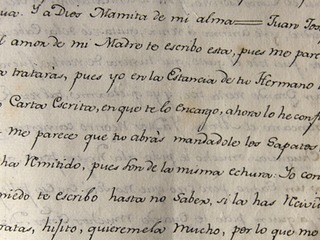 Ya Dios Mamita de mi alma
el amor de mi Madre te escribo esta, pues me pare
a trataràs, pues yo en la Estancia de tu Hermano
Carta Escrita, en que te lo encargo, ahora lo he conf
me parece que tu abràs mandadole los Sapatos
ha Remitido, pues son de la misma echura: Yo con
miedo te escribo hasta no Saber, si la has Recivid
ratas, hijito, quieremela mucho, por lo que mo